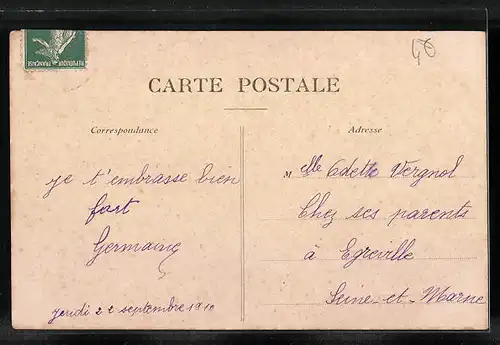 REPUBLIQUE FRANÇAISE
40
CARTE POSTALE
Correspondance
Adresse
je t'embrasse bien
fort
Germaine
Jeudi 22 septembre 1910
Mlle Odette Vergnol
Chez ses parents
à Egreville
Seine-et-Marne